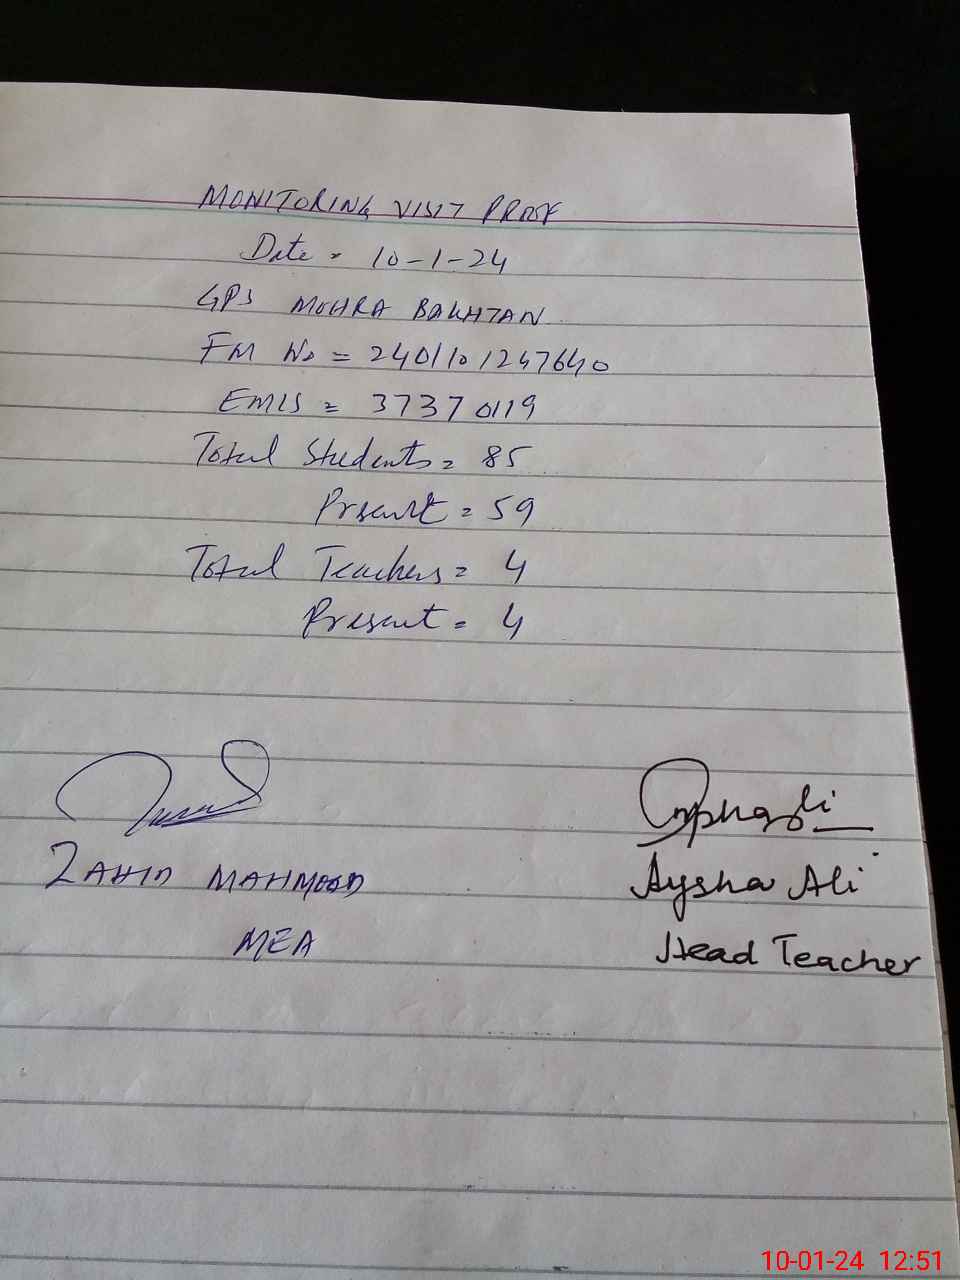 MONITORING VISIT PROOF
Date = 10-1-24
GPS MOHRA BAKHTAN
FM No = 2401101247640
EMIS = 37370119
Total Students = 85
Present = 59
Total Teachers = 4
Present = 4
ZAHID MAHMOOD
MEA
Aysha Ali
Head Teacher
10-01-24 12:51